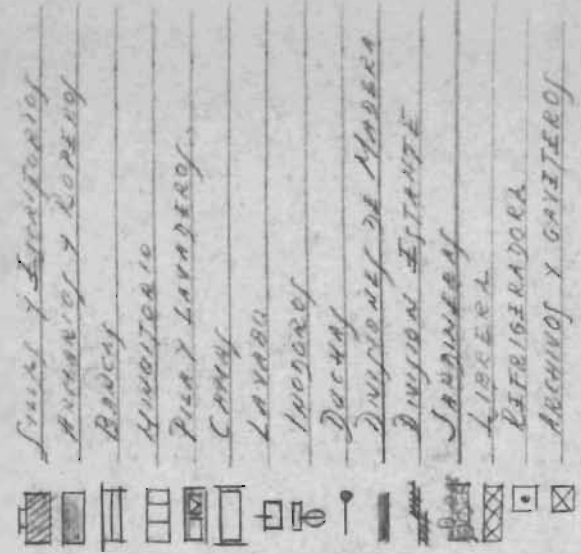 Sillas y Escritorios
Armarios y Roperos
Bancas
Mingitorio
Pila y Lavaderos
Camas
Lavabo
Inodoros
Duchas
Divisiones de Madera
Division Estante
Jardineras
Librera
Refrigeradora
Archivos y Gaveteros